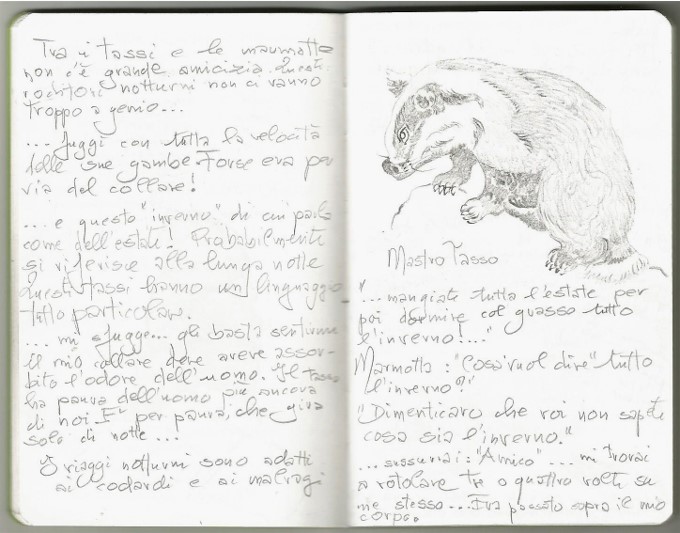 Tra i tassi e le marmotte
non c'è grande amicizia. Questi
roditori notturni non ci vanno
troppo a genio...
... fuggì con tutta la velocità
delle sue gambe. Forse era per
via del collare!
... e questo "inverno" di cui parla
come dell'estate! Probabilmente
si riferisce alla lunga notte
Questi tassi hanno un linguaggio
tutto particolare.
... mi sfugge... gli basta sentirne
il mio collare deve avere assor-
bito l'odore dell'uomo. Il tasso
ha paura dell'uomo più ancora
di noi. E' per paura, che gira
solo di notte...
I viaggi notturni sono adatti
ai codardi e ai malvagi
Mastro Tasso
"... mangiate tutta l'estate per
poi dormire col grasso tutto
l'inverno!..."
Marmotta: "Cosa vuol dire "tutto
l'inverno?"
"Dimenticavo che voi non sapete
cosa sia l'inverno."
... sussurrai: "Amico" ... mi trovai
a rotolare tre o quattro volte su
me stesso... Era passato sopra il mio
corpo.